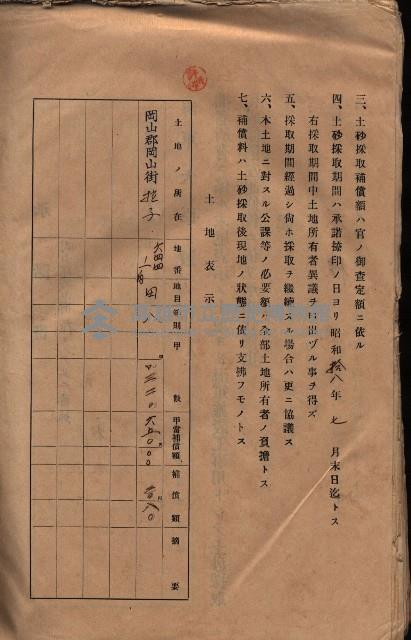 三、土砂採取補償額ハ官ノ御査定額ニ依ル
四、土砂採取期間ハ承諾捺印ノ日ヨリ昭和拾八年七月末日迄トス
右採取期間中土地所有者異議ヲ申出ヅル事ヲ得ズ
五、採取期間經過シ尙ホ採取ヲ繼續スル場合ハ更ニ協議ス
六、本土地ニ對スル公課等ノ必要額ハ全部土地所有者ノ負擔トス
七、補償料ハ土砂採取後現地ノ狀態ニ依リ支拂フモノトス
土地表示
土地ノ所在 地番 地目 則 甲數 甲當補償額 補償額 摘要
岡山郡岡山街 田